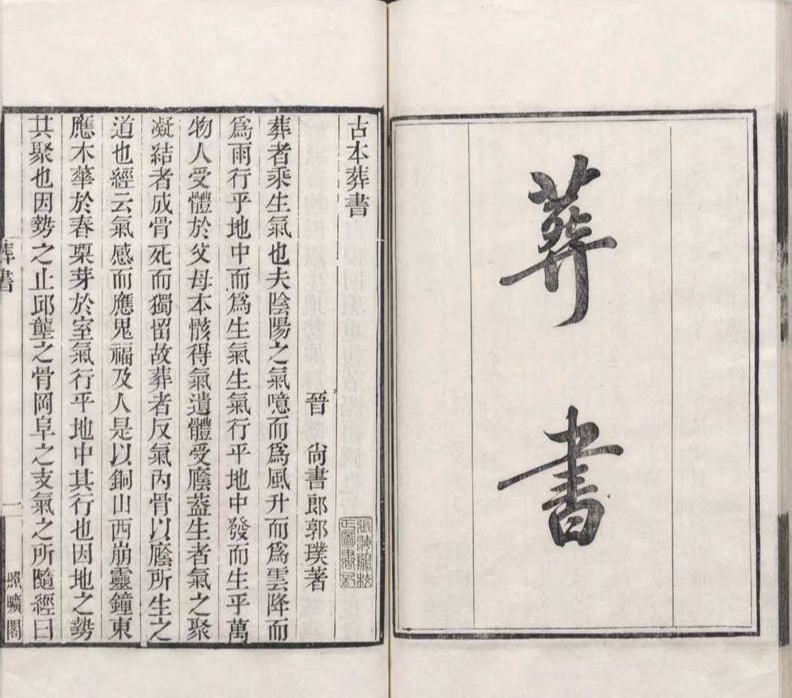 葬書
古本葬書
晉 尚書郎郭璞著
葬者乘生氣也夫陰陽之氣噫而爲風升而爲雲降而
爲雨行乎地中而爲生氣生氣行乎地中發而生乎萬
物人受體於父母本骸得氣遺體受廕蓋生者氣之聚
凝結者成骨死而獨留故葬者反氣內骨以廕所生之
道也經云氣感而應鬼福及人是以銅山西崩靈鐘東
應木華於春栗芽於室氣行乎地中其行也因地之勢
其聚也因勢之止邱壟之骨岡阜之支氣之所隨經曰
葬書
一
照曠閣